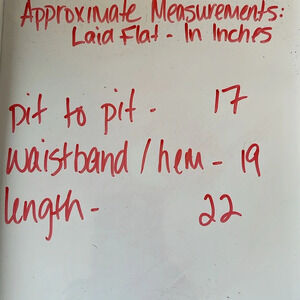 Approximate Measurements:
Laid Flat - In Inches
pit to pit - 17
waistband / hem - 19
length - 22